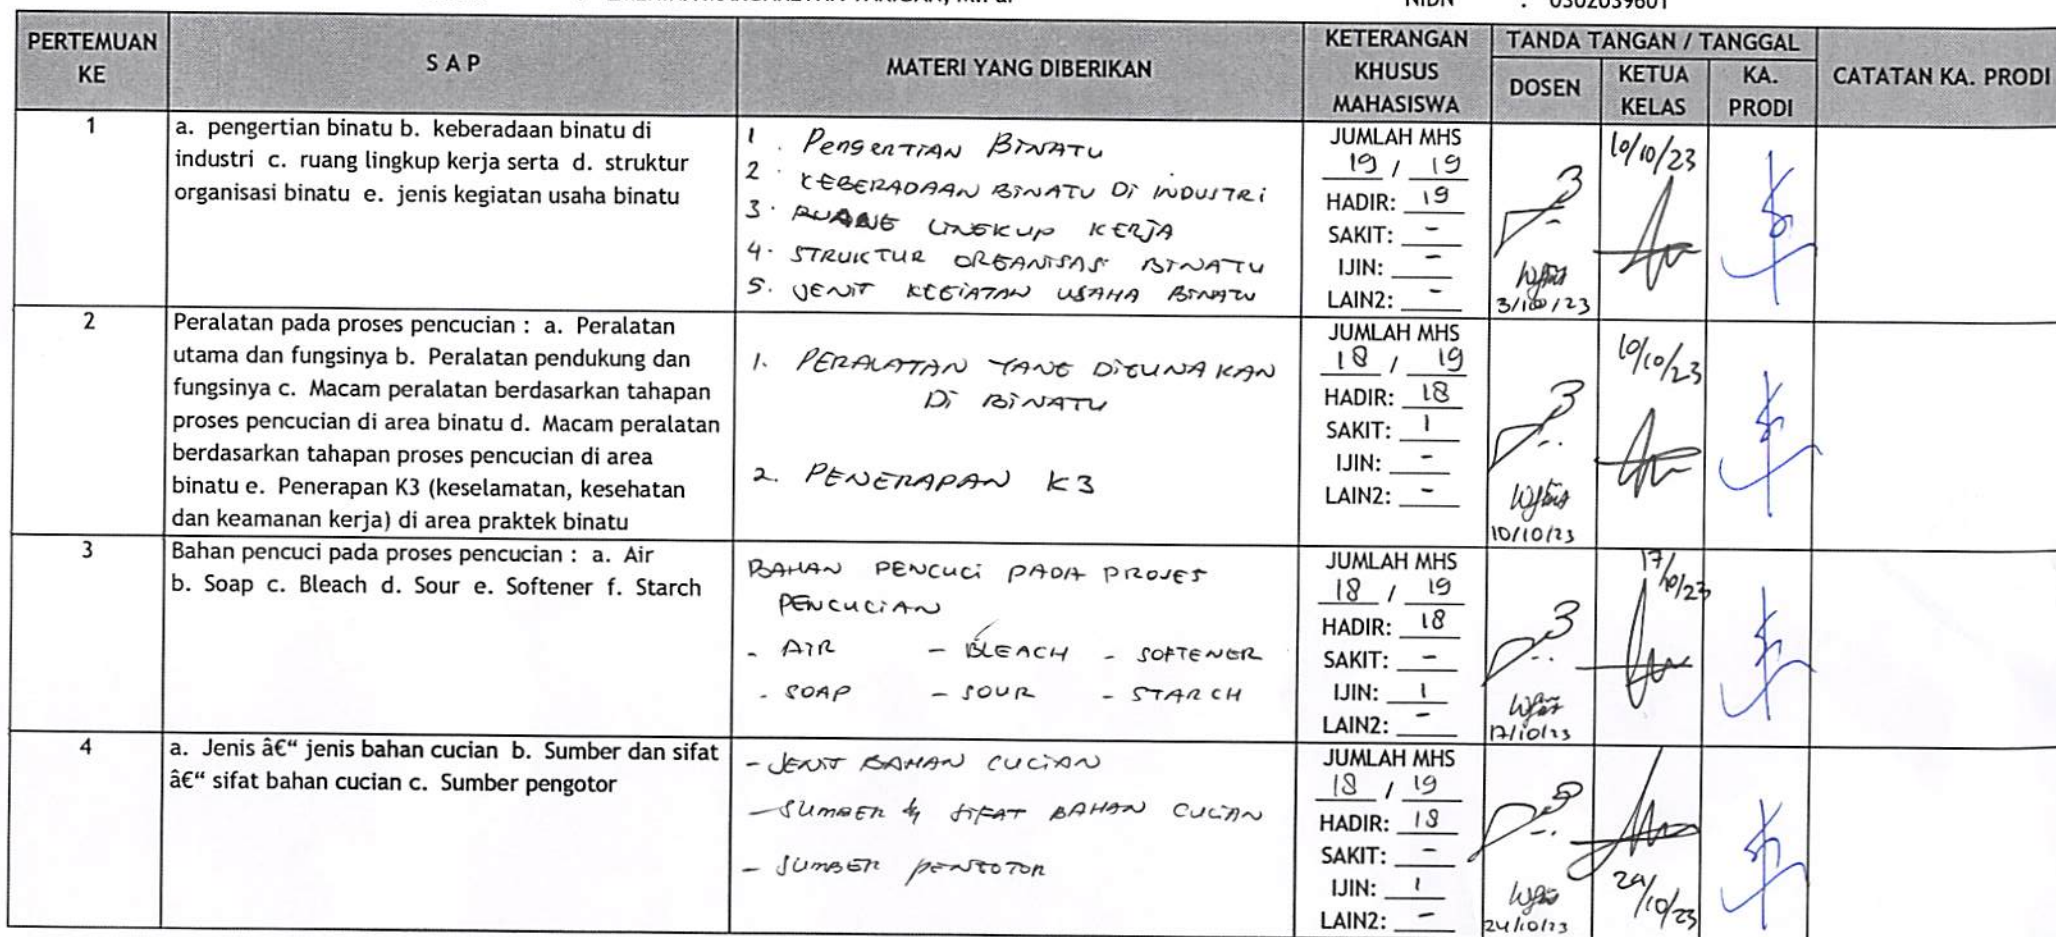 NIDN : 0302039601
PERTEMUAN KE
S A P
MATERI YANG DIBERIKAN
KETERANGAN KHUSUS MAHASISWA
TANDA TANGAN / TANGGAL
DOSEN
KETUA KELAS
KA. PRODI
CATATAN KA. PRODI
1
a. pengertian binatu b. keberadaan binatu di
industri c. ruang lingkup kerja serta d. struktur
organisasi binatu e. jenis kegiatan usaha binatu
1. Pengertian BINATU
2. KEBERADAAN BINATU Di INDUSTRi
3. RUANG LINGKUP KERJA
4. STRUKTUR ORGANISASI BINATU
5. JENIS KEGIATAN USAHA BINATU
JUMLAH MHS
19 / 19
HADIR: 19
SAKIT: -
IJIN: -
LAIN2: -
3/10/23
10/10/23
2
Peralatan pada proses pencucian : a. Peralatan
utama dan fungsinya b. Peralatan pendukung dan
fungsinya c. Macam peralatan berdasarkan tahapan
proses pencucian di area binatu d. Macam peralatan
berdasarkan tahapan proses pencucian di area
binatu e. Penerapan K3 (keselamatan, kesehatan
dan keamanan kerja) di area praktek binatu
1. PERALATAN YANG DIGUNAKAN
Di BINATU
2. PENERAPAN K3
JUMLAH MHS
18 / 19
HADIR: 18
SAKIT: 1
IJIN: -
LAIN2: -
10/10/23
10/10/23
3
Bahan pencuci pada proses pencucian : a. Air
b. Soap c. Bleach d. Sour e. Softener f. Starch
BAHAN PENCUCi PADA PROSES
PENCUCIAN
- AIR - BLEACH - SOFTENER
- SOAP - SOUR - STARCH
JUMLAH MHS
18 / 19
HADIR: 18
SAKIT: -
IJIN: 1
LAIN2: -
17/10/23
17/10/23
4
a. Jenis â€“ jenis bahan cucian b. Sumber dan sifat
â€“ sifat bahan cucian c. Sumber pengotor
- JENIS BAHAN CUCIAN
- SUMBER & SIFAT BAHAN CUCIAN
- SUMBER PENGOTOR
JUMLAH MHS
18 / 19
HADIR: 18
SAKIT: -
IJIN: 1
LAIN2: -
24/10/23
24/10/23